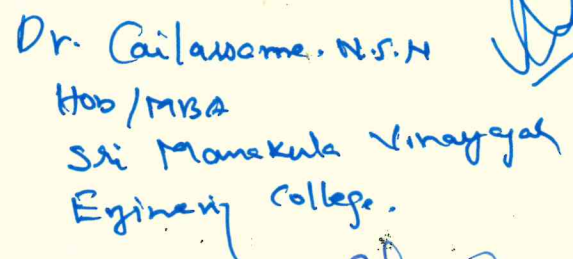 Dr. Cailassame. N.S.N
HOD/MBA
Sri Manakula Vinayagah
Enginerig College.